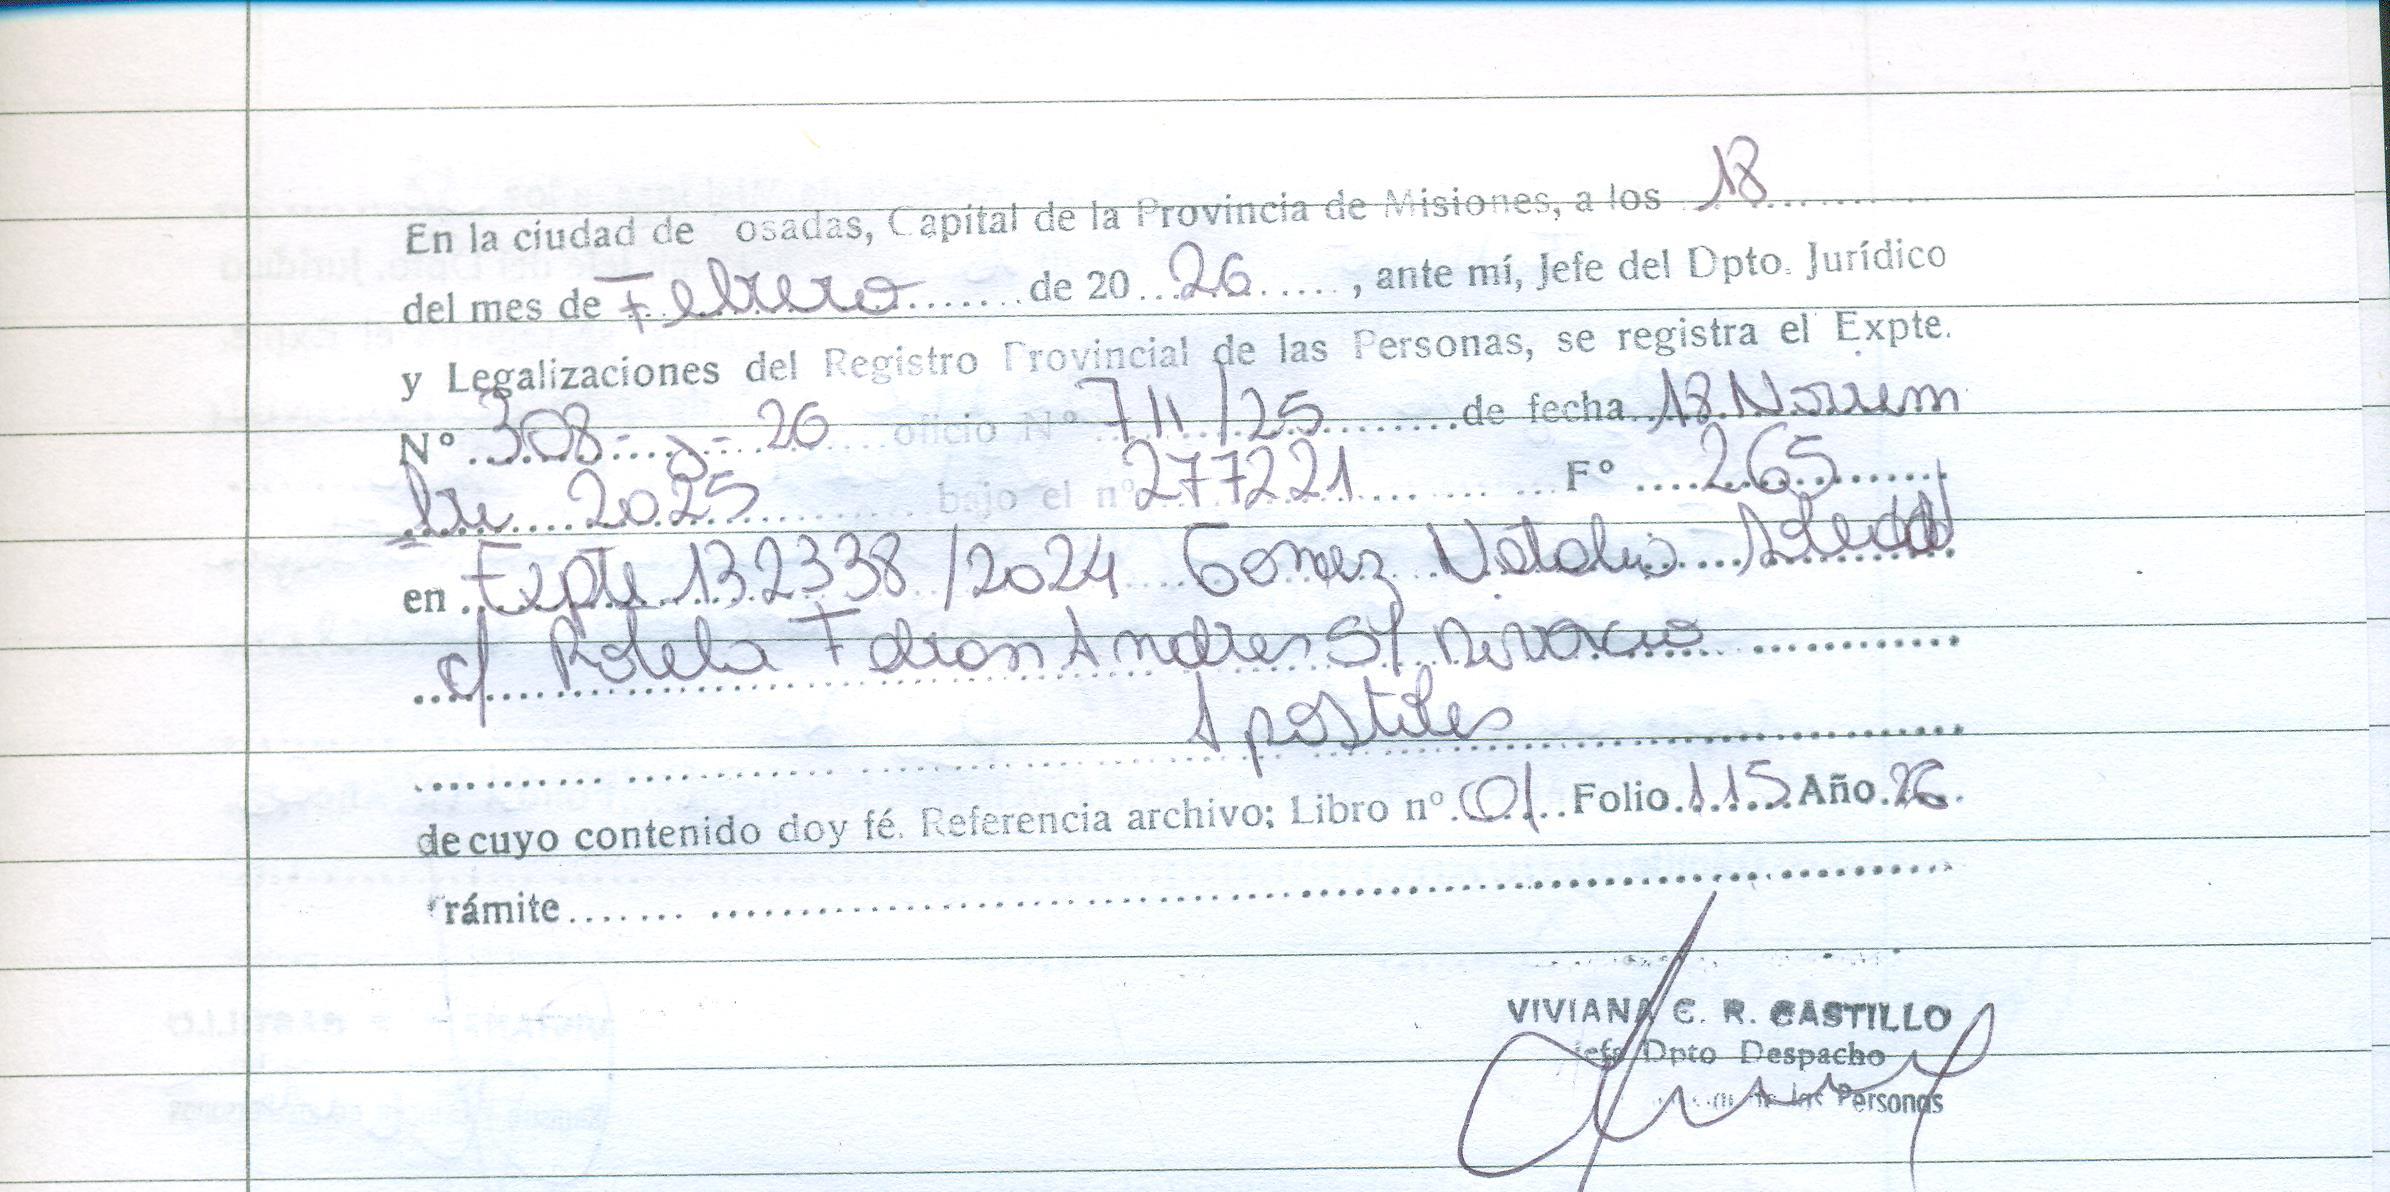 En la ciudad de osadas, Capital de la Provincia de Misiones, a los 18
del mes de Febrero de 20 26, ante mí, Jefe del Dpto. Jurídico
y Legalizaciones del Registro Provincial de las Personas, se registra el Expte.
Nº 308- J- 26 oficio Nº 711/25 de fecha 18 Noviem
bre 2025 bajo el nº 277221 Fº 265
en Expte 132338/2024 Gomez Natalia Soledad
c/ Rotela Fabian Andres S/ Divorcio
Apostiles
de cuyo contenido doy fé. Referencia archivo; Libro nº 01 Folio 115 Año 26
rámite
VIVIANA C. R. CASTILLO
Jefa Dpto Despacho
de las Personas